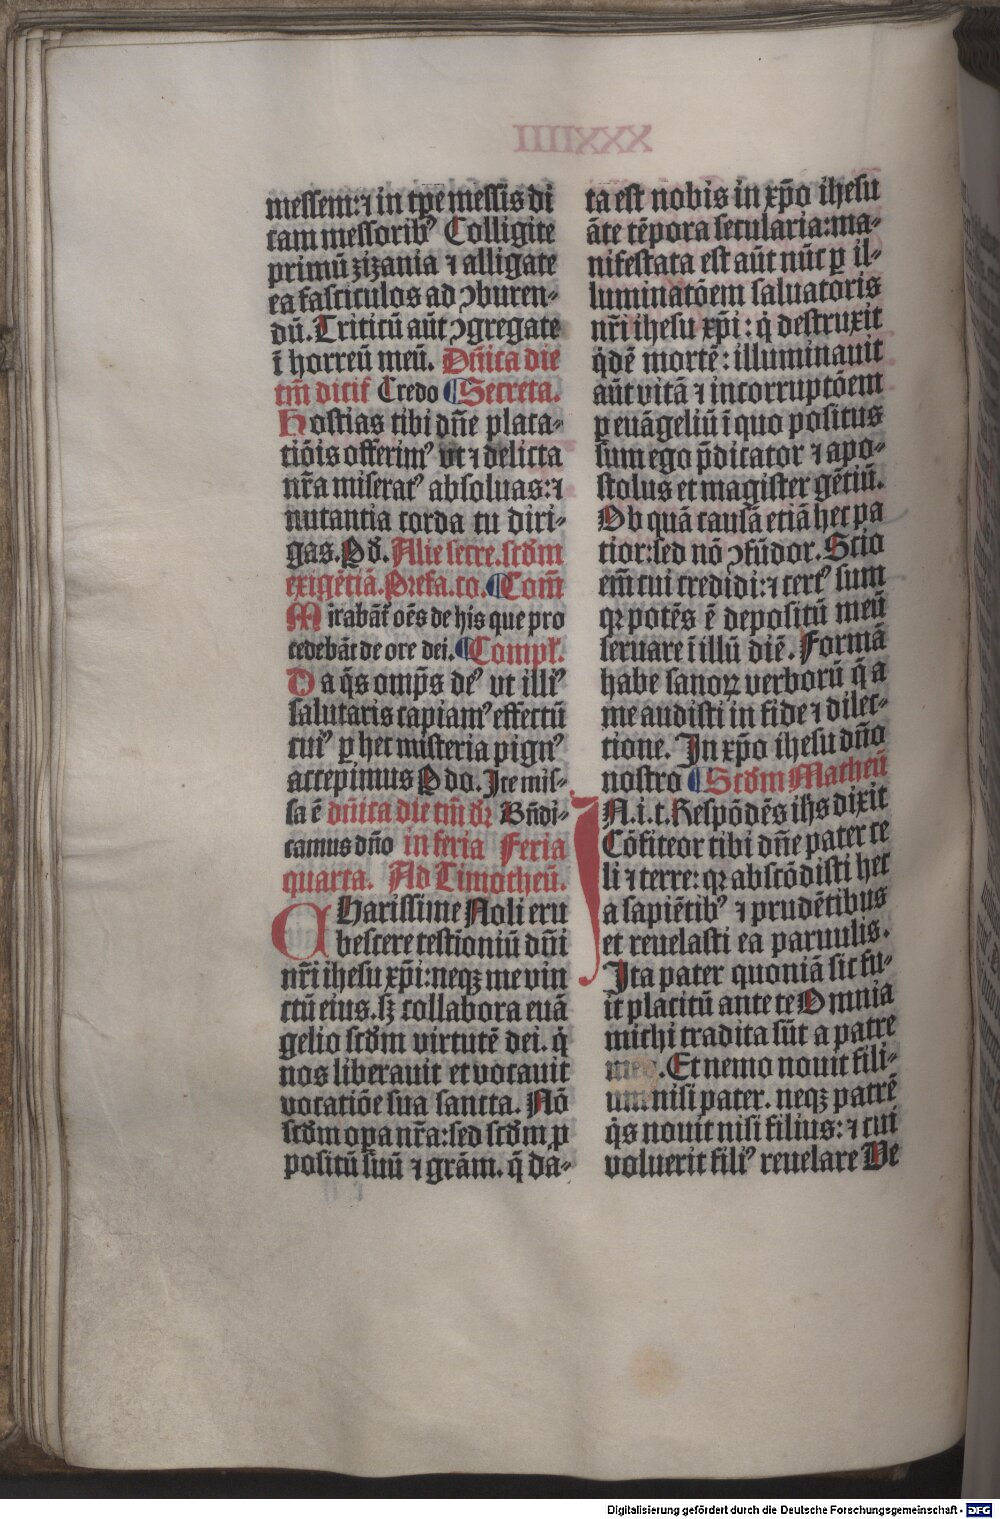 XXXIIII
messem: ⁊ in tp̄e messis di
cam messorib⁹ Colligite
primū zizania ⁊ alligate
ea fasciculos ad ↄburen-
dū. Triticū aūt ↄgregate
ī horreū meū. Dn̄ica die
tm̄ dicit᷑ Credo ¶ Secreta.
Hostias tibi dn̄e placa-
tiōis offerim⁹ vt ⁊ delicta
nr̄a miserat⁹ absoluas: ⁊
nutantia corda tu diri-
gas. P̲ d̄. Alie secre. scd̄m
exigētiā. Prefa. co. ¶ Com̄
Mirabāt᷑ oēs de his que pro
cedebāt de ore dei. ¶ Compl̄.
Da q̄s omp̄s de⁹ vt illi⁹
salutaris capiam⁹ effectū
cui⁹ ꝑ hec misteria pign⁹
accepimus P̲ do. Ite mis-
sa ē dn̄ica die tm̄ dr̄ Bn̄di-
camus dn̄o in feria Feria
quarta. Ad Timotheū.
CHarissime Noli eru
bescere testioniū dn̄i
nr̄i ihesu xp̄i: neqꝫ me vin
ctū eius. sꝫ collabora euā
gelio scd̄m virtutē dei. q̇
nos liberauit et vocauit
vocatiōe sua sancta. Nō
scd̄m oꝑa nr̄a: sed scd̄m ꝓ
positū suū ⁊ grām. q̄ da-
ta est nobis in xp̄o ihesu
āte tēpora secularia: ma-
nifestata est aūt nūc ꝑ il-
luminatōem saluatoris
nr̄i ihesu xp̄i: q̇ destruxit
q̇dē mortē: illuminauit
aūt vitā ⁊ incorruptōem
ꝑ euāgeliū ī quo positus
sum ego p̄dicator ⁊ apo-
stolus et magister gētiū.
Ob quā causā etiā hec pa
tior: sed nō ↄfūdor. Scio
em̄ cui credidi: ⁊ cert⁹ sum
qꝛ potēs ē depositū meū
seruare ī illū diē. Formā
habe sanoꝝ verborū q̄ a
me audisti in fide ⁊ dilec-
tione. In xp̄o ihesu dn̄o
nostro ¶ Scd̄m Matheū
IN. i. t. Respōdēs ihs dixit
Cōfiteor tibi dn̄e pater ce
li ⁊ terre: qꝛ abscōdisti hec
a sapiētib⁹ ⁊ prudētibus
et reuelasti ea paruulis.
Ita pater quoniā sic fu-
it placitū ante te Omnia
michi tradita sūt a patre
meo. Et nemo nouit fili-
um nisi pater. neqꝫ patrē
q̇s nouit nisi filius: ⁊ cui
voluerit fili⁹ reuelare Ve
Digitalisierung gefördert durch die Deutsche Forschungsgemeinschaft - DFG